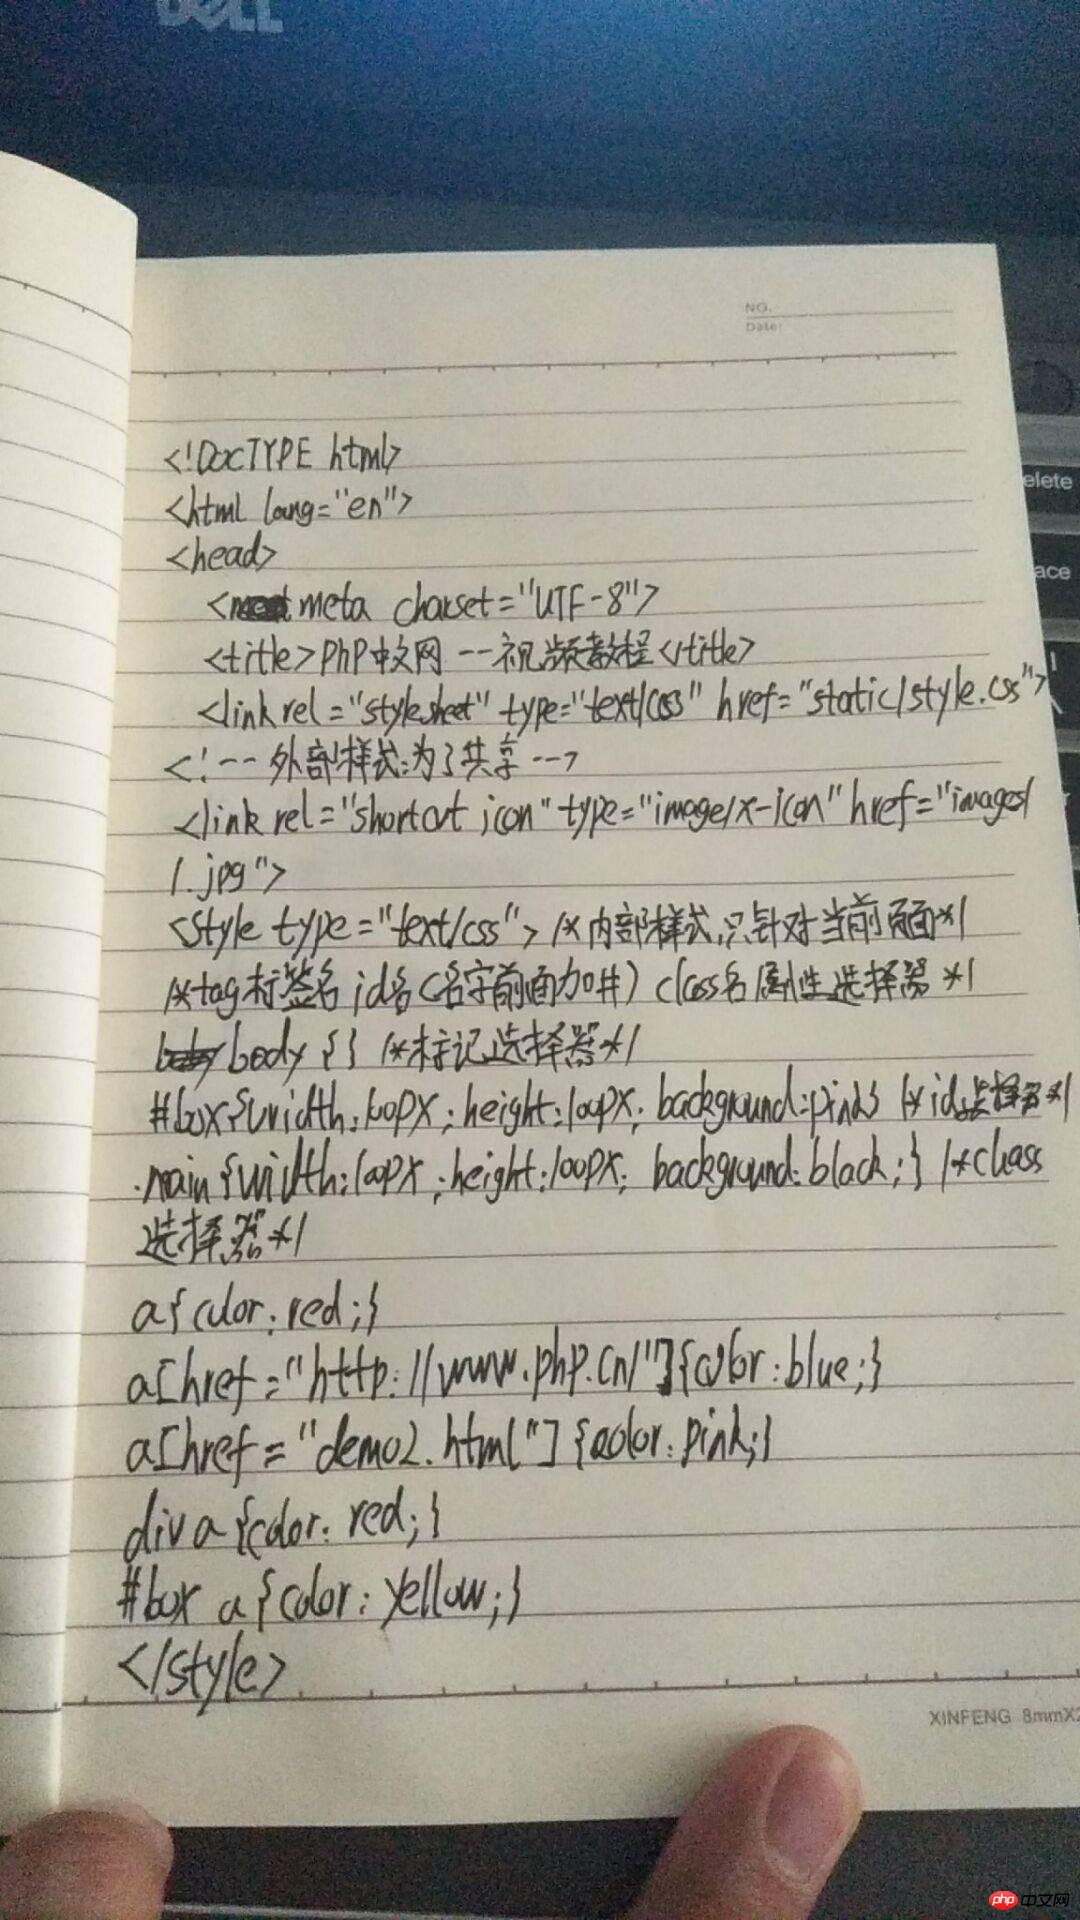 DELL
NO.
Date:
elete
ace
<!DocTYPE html>
<html lang="en">
<head>
<meta charset="UTF-8">
<title>PhP中文网 --视频教程</title>
<link rel="stylesheet" type="text/css" href="static/style.css">
<!-- 外部样式:为了共享 -->
<link rel="shortcut icon" type="image/x-icon" href="images/
1.jpg">
<style type="text/css"> /*内部样式,只针对当前页面*/
/*tag标签名 id名(名字前面加#) class名 属性选择器 */
body {} /*标记选择器*/
#box{width:100px;height:100px;background:pink} /*id选择器*/
.main{width:100px;height:100px;background:black;} /*class
选择器*/
a{color:red;}
a[href="http://www.php.cn/"]{color:blue;}
a[href="demo2.html"]{color:pink;}
div a{color:red;}
#box a{color:yellow;}
</style>
XINFENG 8mmX2
php 中文网